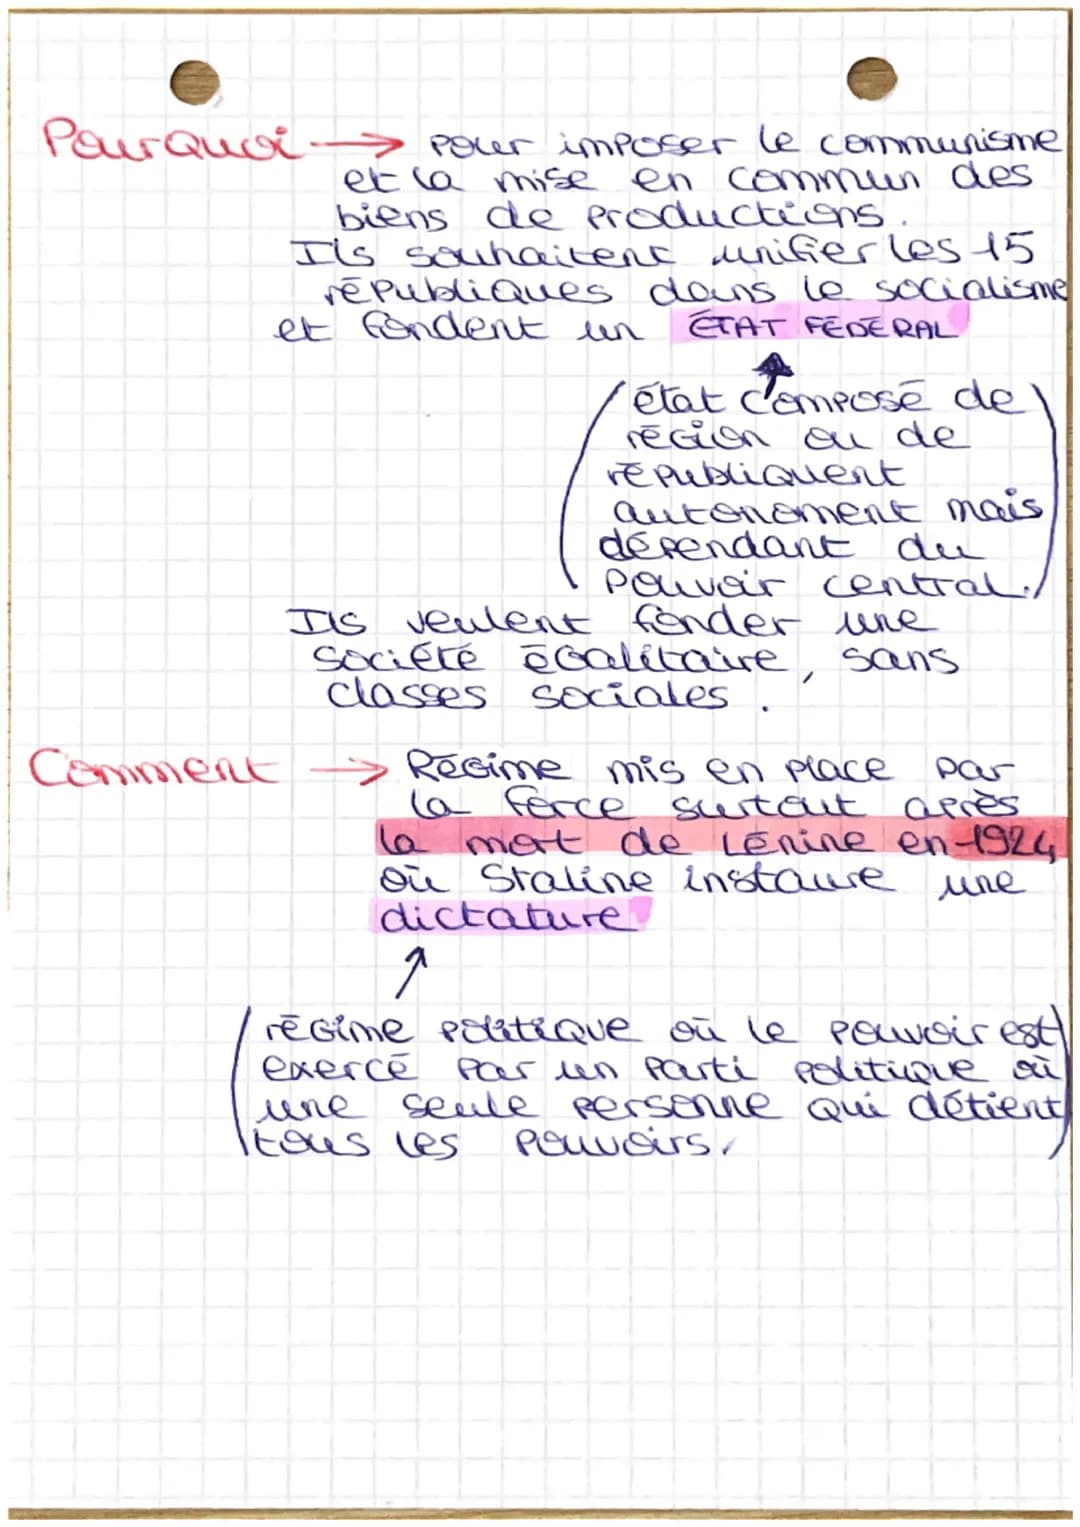 PourQuoi → pour imposer le communisme
et la mise en commun des
biens de productions.
Ils souhaitent unifier les 15
républiques dans le socialisme
et fondent un ÉTAT FÉDÉRAL
(état composé de
région ou de
républiquent
autonoment mais
dépendant du
pouvoir central.)
Ils veulent fonder une
société égalitaire, sans
classes sociales.
Comment → Régime mis en place par
la force surtout après
la mort de Lénine en 1924
où Staline instaure une
dictature
(régime politique où le pouvoir est
exercé par un parti politique où
une seule personne qui détient
tous les pouvoirs.)